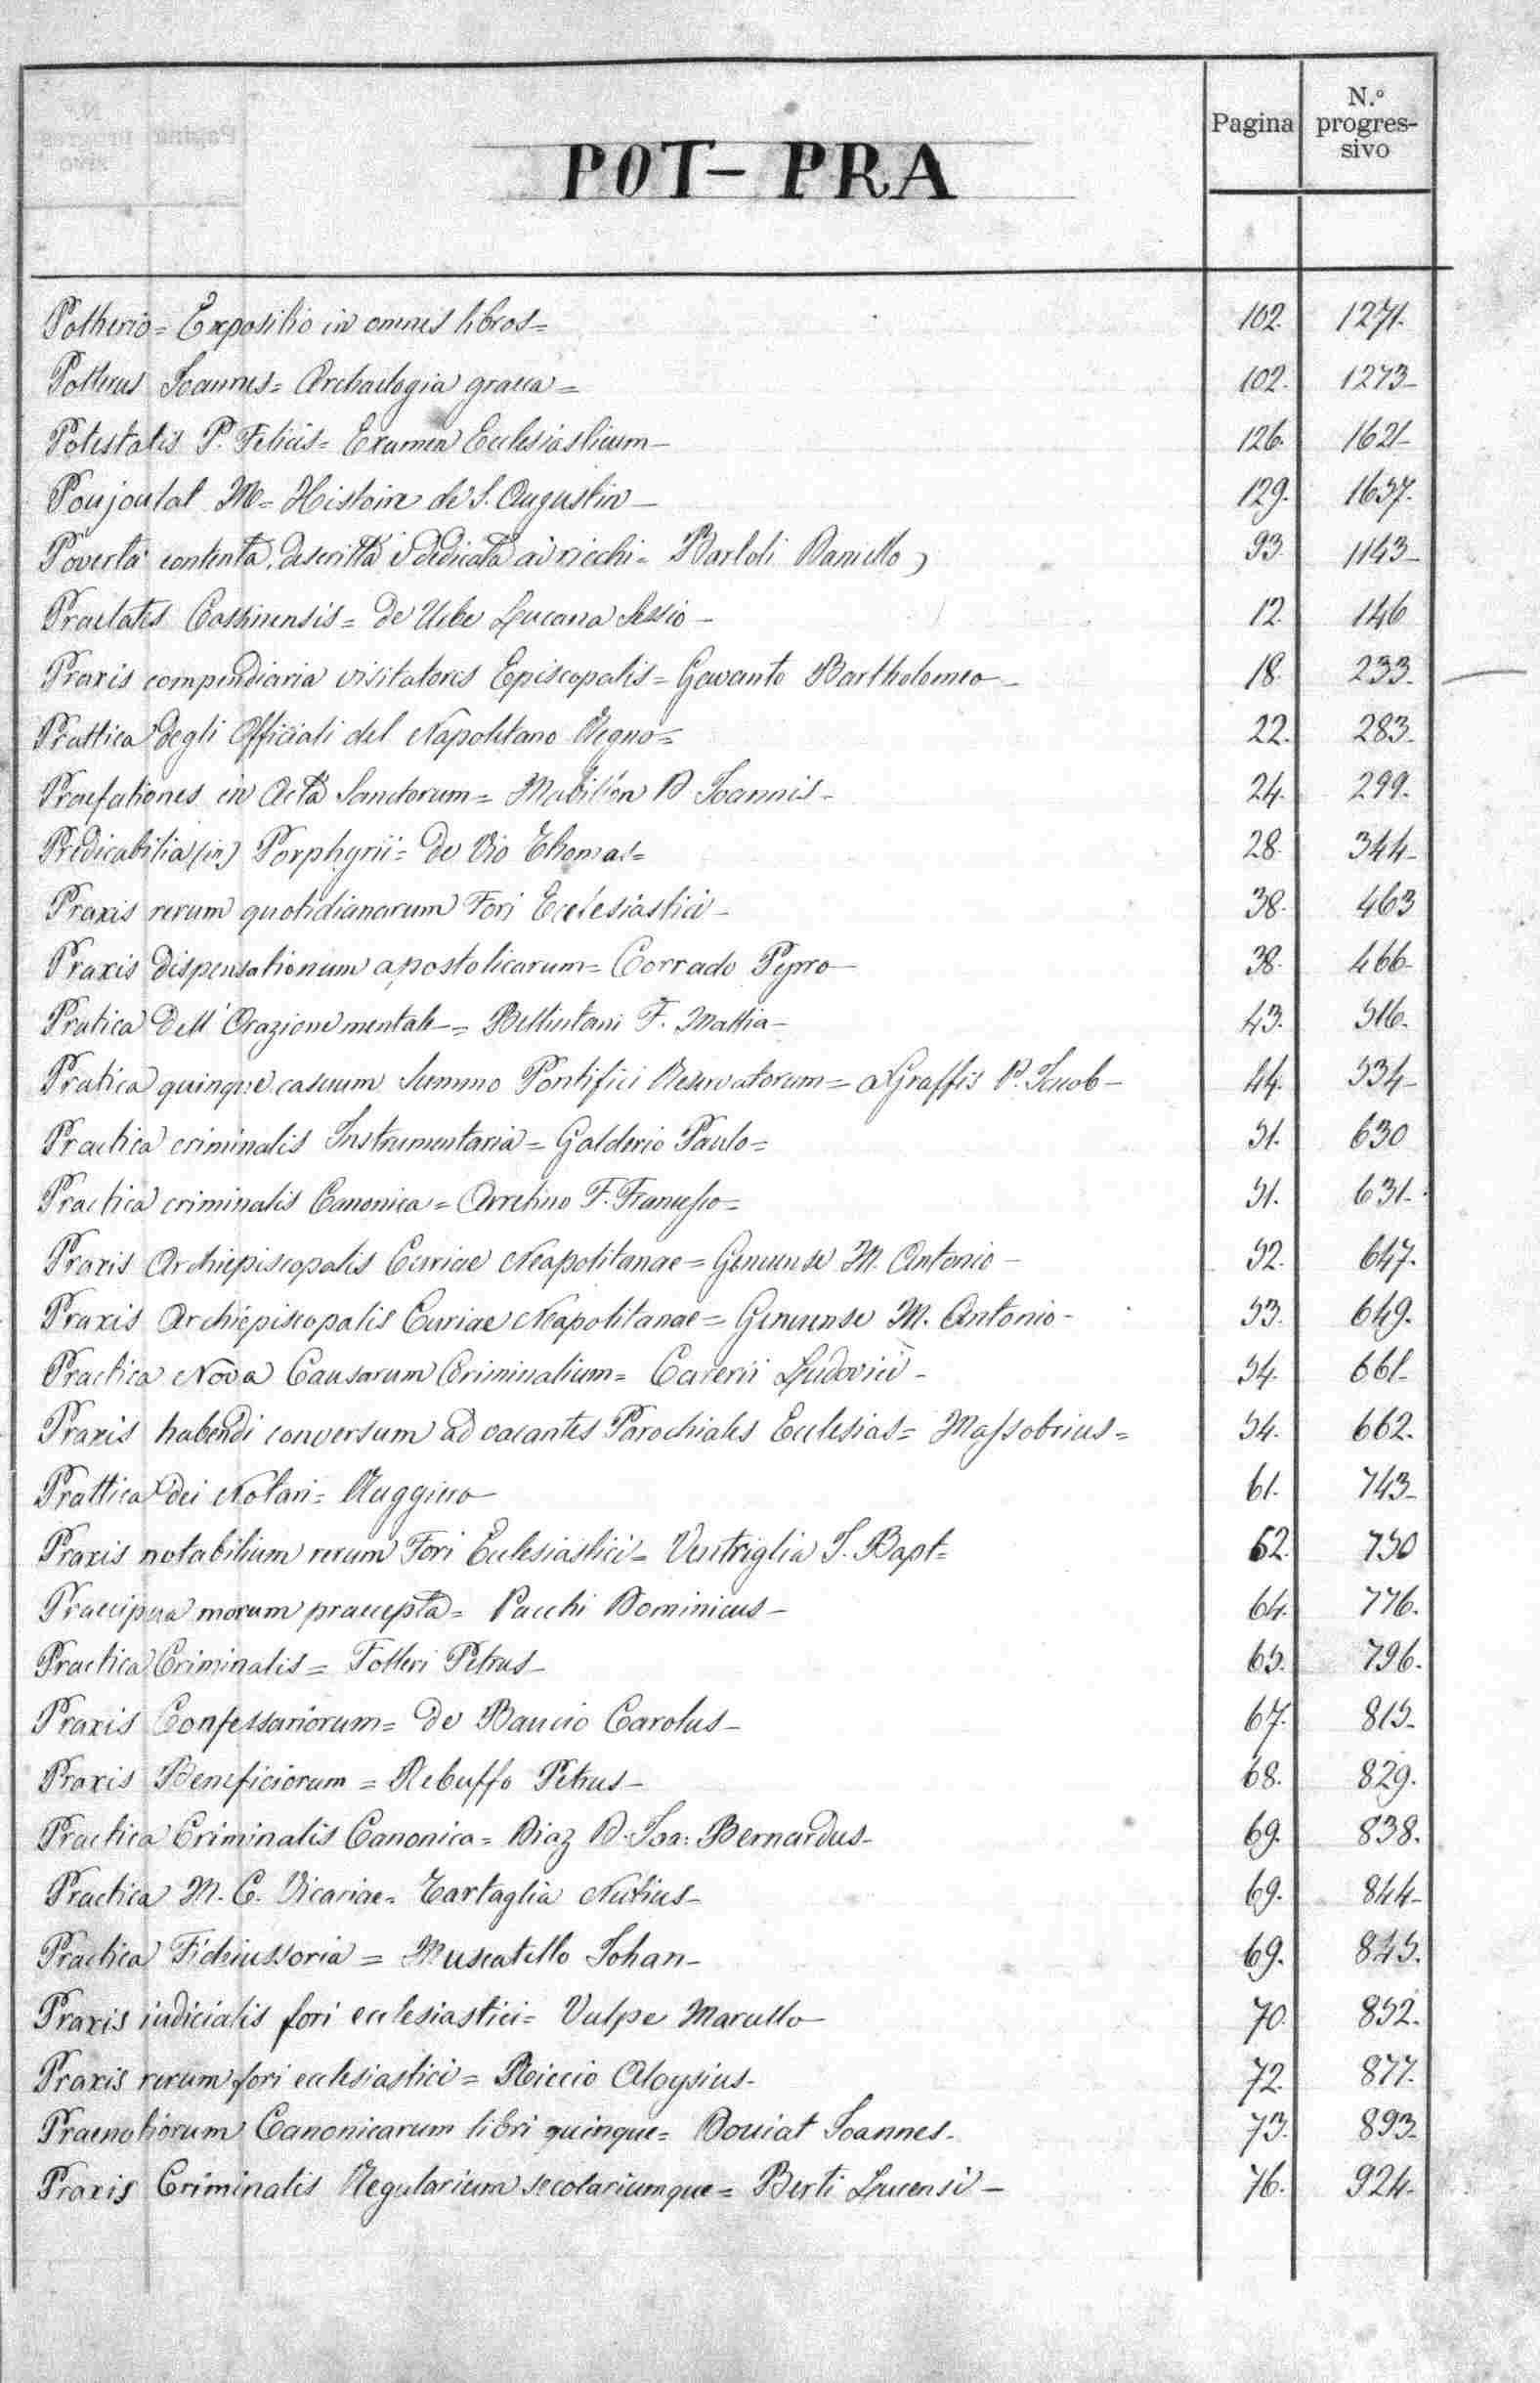 POT - PRA
Pagina
N.º progres-
sivo
Potherio = Expositio in omnes libros = 102. 1271.
Potterus Ioannes = Archaelogia graeca = 102. 1273-
Potestatis P. Felicis = Examen Ecclesiasticum - 126. 1621-
Poujoulat M = Histoire de S. Augustin - 129. 1637.
Povertà contenta, descritta e dedicata ai ricchi = Bartoli Daniello 93. 1143-
Praelatis Cassinensis = de Urbe Lucana 12. 146
Praxis compendiaria visitatores Episcopalis = Gavanto Bartholomeo - 18. 233.
Prattica degli Officiali del Napoletano Regno = 22. 283.
Praefationes in Acta Sanctorum = Mabillon D. Ioannis - 24. 299.
Predicabilia (in) Porphyrii = de Vio Thomas = 28. 344-
Praxis rerum quotidianarum Fori Ecclesiastici - 38. 463
Praxis dispensationum apostolicarum = Corrado Pyrro - 38. 466-
Pratica dell' Orazione mentale = Bellintani F. Mattia - 43. 516.
Pratica quinque casuum Summo Pontifici Reservatorum = a Graffis P. Iacob - 44. 534-
Practica criminalis Instrumentaria = Galderio Paulo = 51. 630
Practica criminalis Canonica = Arretino F. Francesco = 51. 631.
Praxis Archiepiscopalis Curiae Neapolitanae = Genuense M. Antonio - 52. 647.
Praxis Archiepiscopalis Curiae Neapolitanae = Genuense M. Antonio - 53. 649.
Practica Nova Causarum Criminalium = Carerii Ludovici - 54. 661-
Praxis habendi conversum ad vacantes Parochiales Ecclesias = Massobrius = 54. 662.
Prattica dei Notari = Ruggiero 61. 743-
Praxis notabilium rerum Fori Ecclesiastici = Ventriglia I. Bapt = 62. 750
Praecipua morum praecepta = Pacchi Dominicus - 64. 776.
Practica Criminalis = Folleri Petrus - 65. 796.
Praxis Confessariorum = de Baucio Carolus - 67. 815-
Praxis Beneficiorum = Rebuffo Petrus - 68. 829.
Practica Criminalis Canonica = Diaz D. Ioa: Bernardus - 69. 838.
Practica M. C. Vicariae = Tartaglia Nutius - 69. 844-
Practica Fideiussoria = Muscatello Iohan - 69. 845.
Praxis iudicialis fori ecclesiastici = Vulpe Marullo - 70. 852.
Praxis rerum fori ecclesiastici = Riccio Aloysius - 72. 877.
Praenotiorum Canonicarum libri quinque = Douiat Ioannes - 73. 893-
Praxis Criminalis Regularium secolariumque = Berti Lucensi - 76. 924-